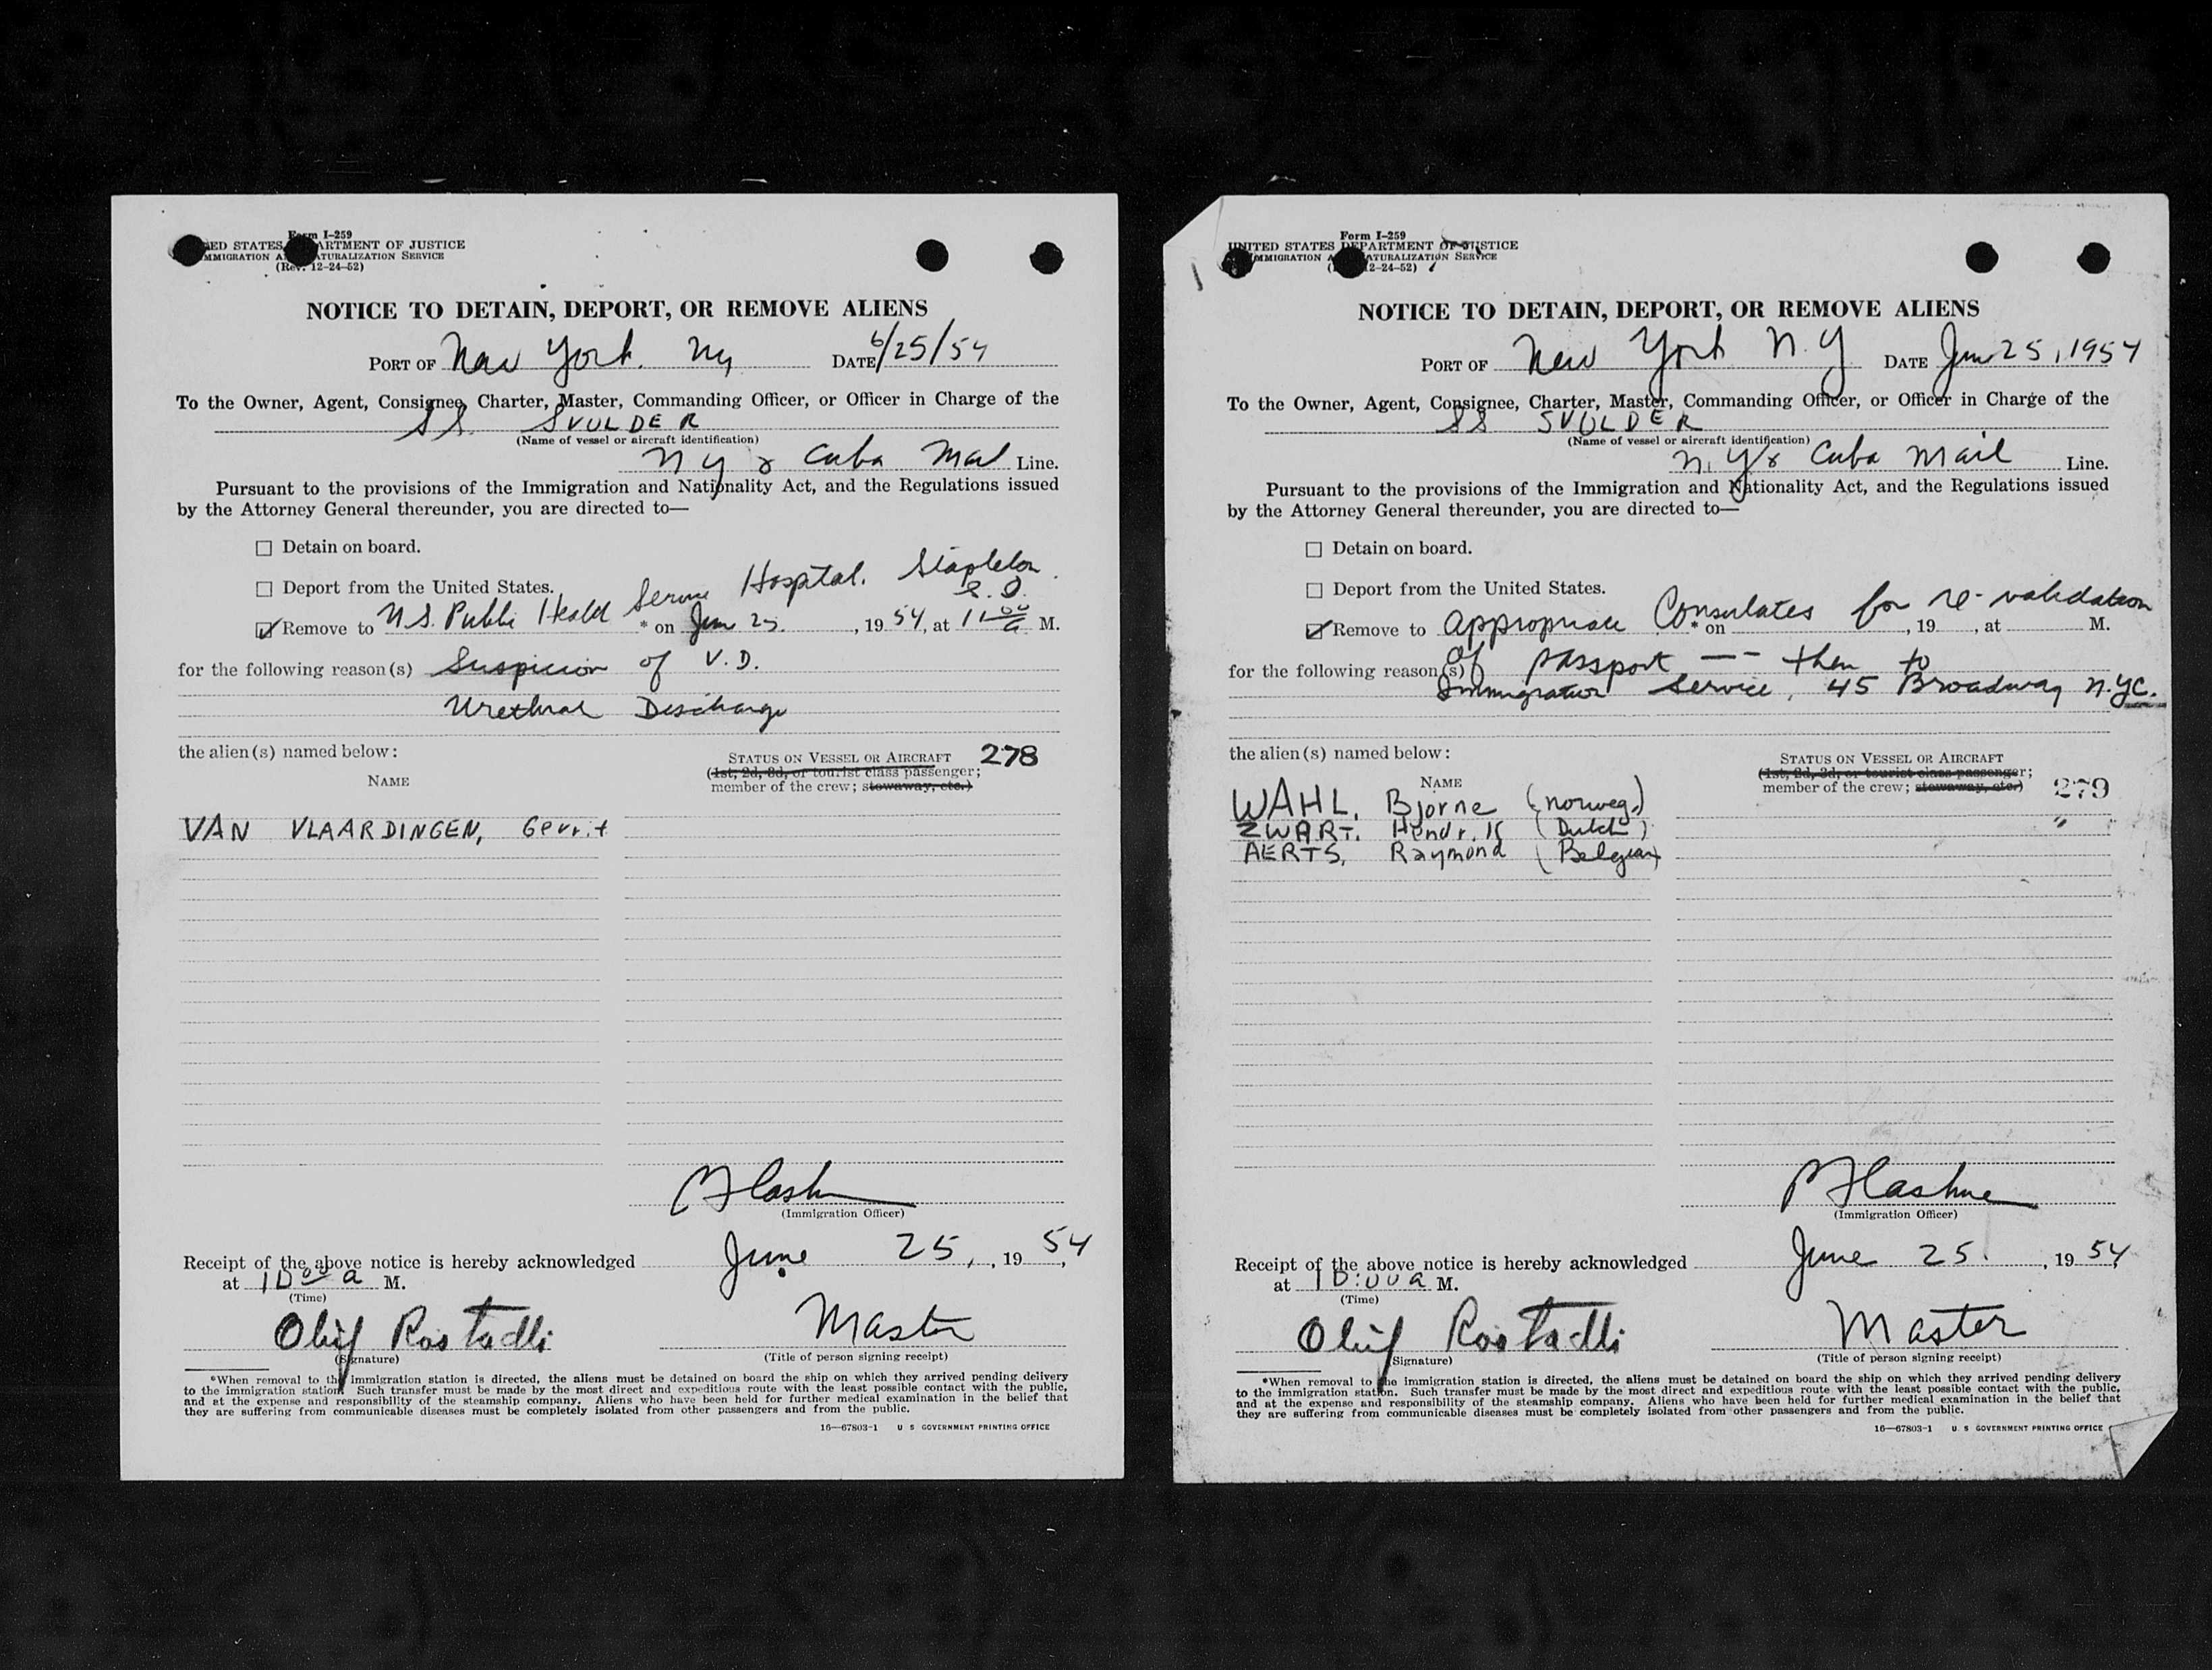 Form I-259
UNITED STATES DEPARTMENT OF JUSTICE
IMMIGRATION AND NATURALIZATION SERVICE
(Rev. 12-24-52)
NOTICE TO DETAIN, DEPORT, OR REMOVE ALIENS
PORT OF New York. Ny DATE 6/25/54
To the Owner, Agent, Consignee, Charter, Master, Commanding Officer, or Officer in Charge of the
SS. SVULDER
(Name of vessel or aircraft identification)
N Y & Cuba Mail Line.
Pursuant to the provisions of the Immigration and Nationality Act, and the Regulations issued
by the Attorney General thereunder, you are directed to—
☐ Detain on board.
☐ Deport from the United States.
☑ Remove to U.S. Public Health Service Hospital. Stapleton S.I. * on June 25. , 19 54, at 11 00 a M.
for the following reason(s) Suspicion of V.D.
Urethral Discharge
the alien(s) named below:
STATUS ON VESSEL OR AIRCRAFT 278
NAME (1st, 2d, 3d, or tourist class passenger;
member of the crew; stowaway, etc.)
VAN VLAARDINGEN, Gerrit
(Immigration Officer)
Receipt of the above notice is hereby acknowledged June 25, , 19 54,
at 10 00 a M.
(Time)
Master
(Signature) (Title of person signing receipt)
*When removal to the immigration station is directed, the aliens must be detained on board the ship on which they arrived pending delivery
to the immigration station. Such transfer must be made by the most direct and expeditious route with the least possible contact with the public,
and at the expense and responsibility of the steamship company. Aliens who have been held for further medical examination in the belief that
they are suffering from communicable diseases must be completely isolated from other passengers and from the public.
16—67803-1 U S GOVERNMENT PRINTING OFFICE
Form I-259
UNITED STATES DEPARTMENT OF JUSTICE
IMMIGRATION AND NATURALIZATION SERVICE
(Rev. 12-24-52)
NOTICE TO DETAIN, DEPORT, OR REMOVE ALIENS
PORT OF New York N.Y DATE June 25, 1954
To the Owner, Agent, Consignee, Charter, Master, Commanding Officer, or Officer in Charge of the
SS SVULDER
(Name of vessel or aircraft identification)
N. Y & Cuba Mail Line.
Pursuant to the provisions of the Immigration and Nationality Act, and the Regulations issued
by the Attorney General thereunder, you are directed to—
☐ Detain on board.
☐ Deport from the United States.
☑ Remove to appropriate Consulates for re-validation * on , 19 , at M.
for the following reason(s) of passport -- then to
Immigration Service, 45 Broadway N.Y.C.
the alien(s) named below:
STATUS ON VESSEL OR AIRCRAFT
NAME (1st, 2d, 3d, or tourist class passenger;
member of the crew; stowaway, etc.) 279
WAHL, Bjorne (Norweg.)
ZWART. Hendrik (Dutch) "
AERTS, Raymond (Belgian)
(Immigration Officer)
Receipt of the above notice is hereby acknowledged June 25. , 19 54
at 10:00 a M.
(Time)
Master
(Signature) (Title of person signing receipt)
*When removal to the immigration station is directed, the aliens must be detained on board the ship on which they arrived pending delivery
to the immigration station. Such transfer must be made by the most direct and expeditious route with the least possible contact with the public,
and at the expense and responsibility of the steamship company. Aliens who have been held for further medical examination in the belief that
they are suffering from communicable diseases must be completely isolated from other passengers and from the public.
16—67803-1 U. S GOVERNMENT PRINTING OFFICE